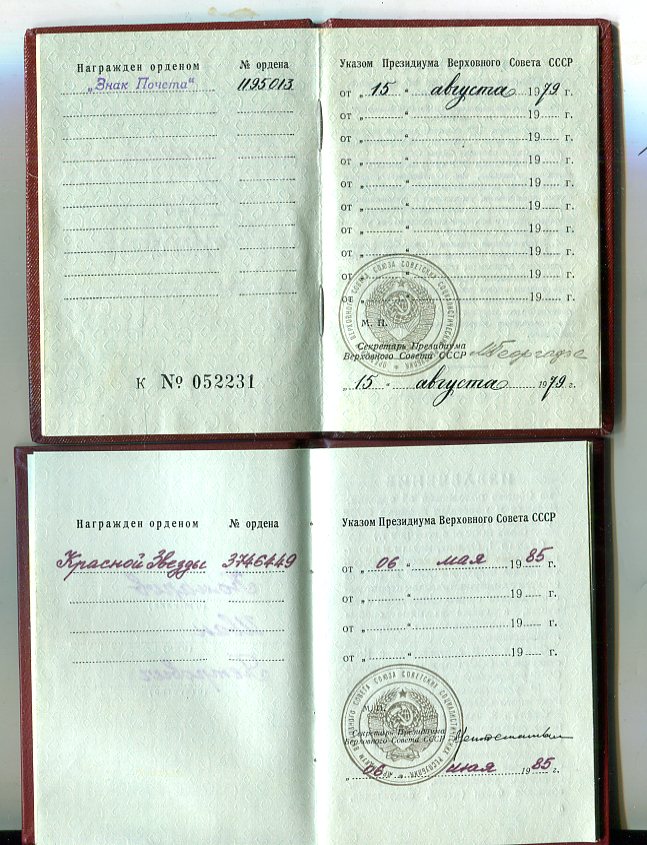 Награжден орденом № ордена
„Знак Почета“ 1195013
К № 052231
Указом Президиума Верховного Совета СССР
от „15“ августа 1979 г.
от „ “ 19 г.
от „ “ 19 г.
от „ “ 19 г.
от „ “ 19 г.
от „ “ 19 г.
от „ “ 19 г.
от „ “ 19 г.
от „ “ 19 г.
от „ “ 19 г.
М. П.
Секретарь Президиума
Верховного Совета СССР
„15 августа 1979 г.
Награжден орденом № ордена
Красной Звезды 3746449
Указом Президиума Верховного Совета СССР
от „06“ мая 1985 г.
от „ “ 19 г.
от „ “ 19 г.
от „ “ 19 г.
М. П.
Секретарь Президиума
Верховного Совета СССР
„06“ мая 1985 г.